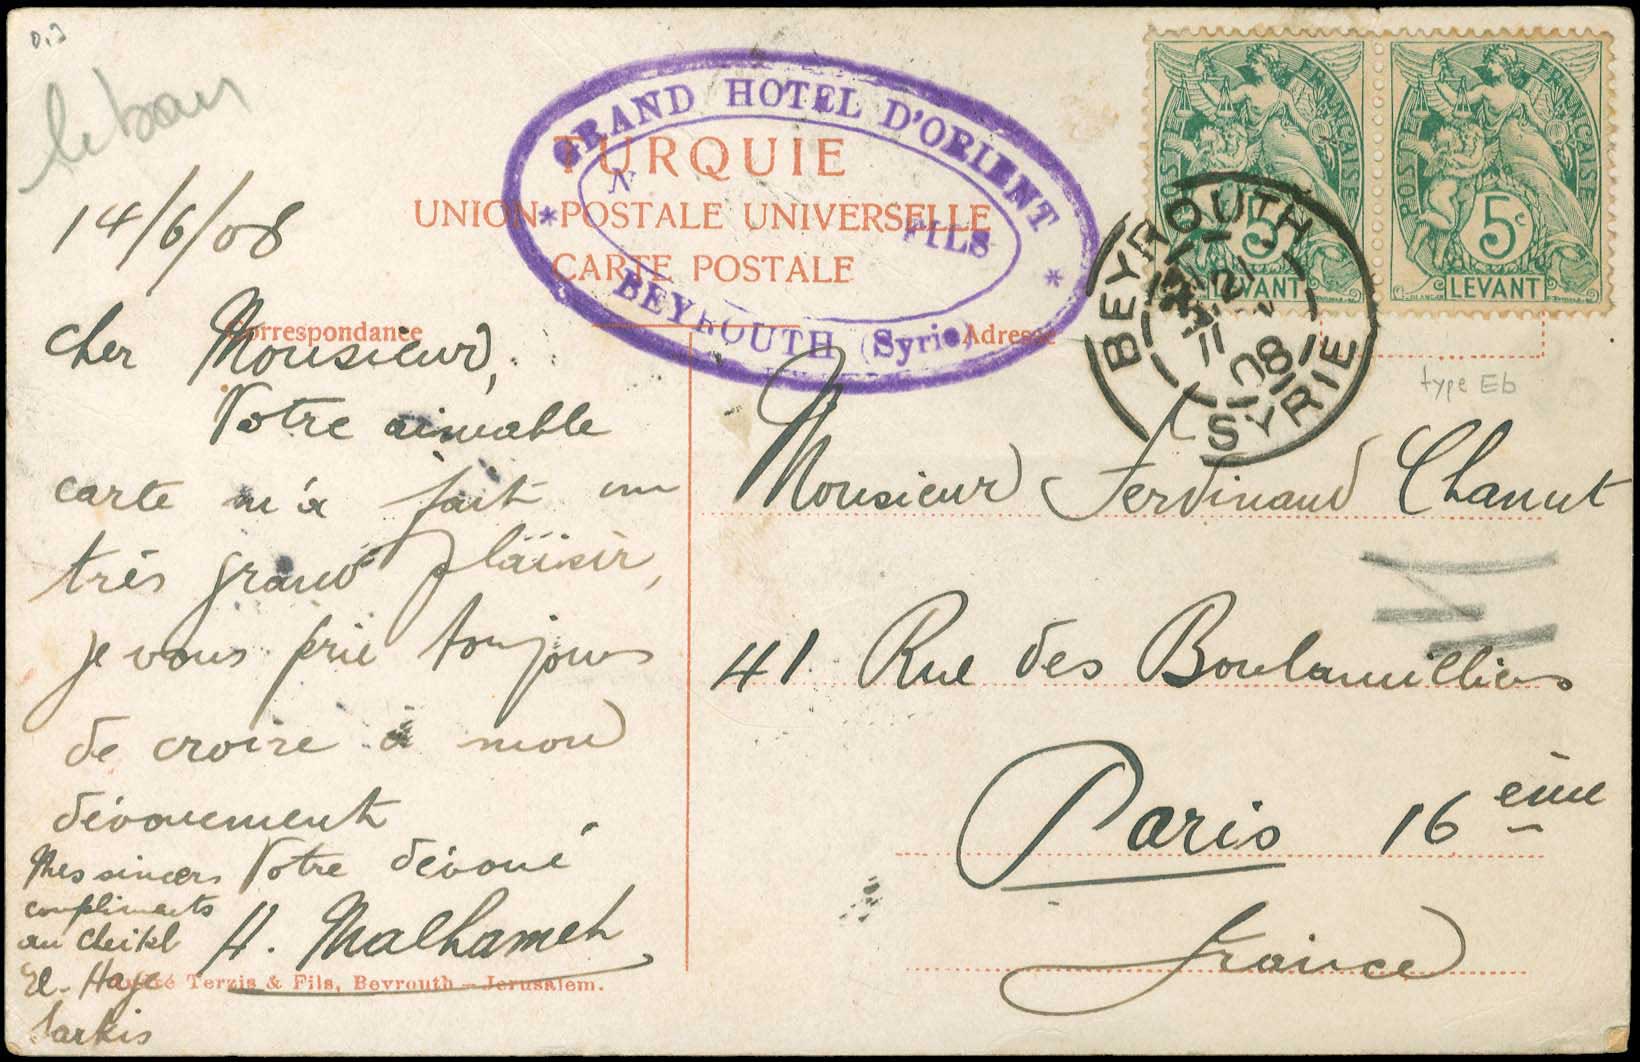 liban
14/6/08
GRAND HOTEL D'ORIENT
N FILS
BEYROUTH (Syrie)
TURQUIE
UNION POSTALE UNIVERSELLE
CARTE POSTALE
POSTE FRANÇAISE
5c
LEVANT
POSTE FRANÇAISE
5c
LEVANT
BEYROUTH
21
08
SYRIE
type Eb
Correspondance
Adresse
cher Monsieur,
Votre aimable
carte m'a fait un
très grand plaisir,
je vous prie toujours
de croire à mon
dévouement
Votre dévoué
H. Malhameh
Mes sincers
compliments
au cheikh
El-Hage
Sarkis
Terzis & Fils, Beyrouth - Jerusalem.
Monsieur Ferdinand Chanut
41 Rue des Boulainvilliers
Paris 16 ème
France